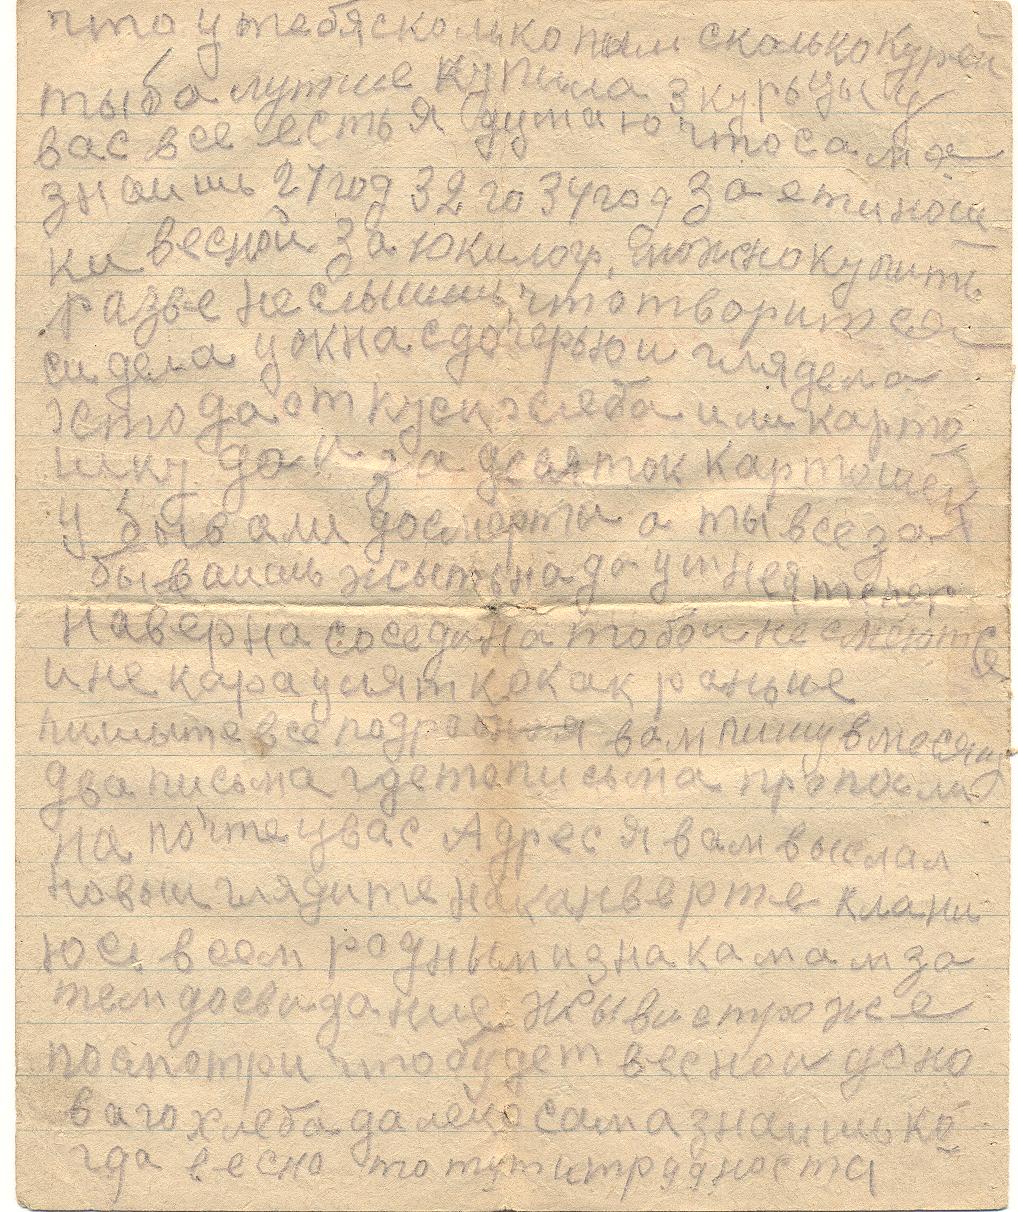 что у тебя сколько там сколько курей
ты ба лутше купила 3 курыцы у
вас все есть я думаю что сама
знаишь 21 год 32 го 34 год За ети
ки весной За можно купить
разве не слышиш что творитса
сидела у окна с дочерью и глядела
хто даст кусок хлеба или карто
шку да за десяток картошек
убывали досмерти а ты все за
бываишь жыть нада умнея тепер
наверна соседи на тобой не смеютсе
и не караулят как раньше
пишыте все подробня я вам пишу вмесяц
два письма где то письма пропали
на почте у вас Адрес я вам выслал
новыи глядите на канверте клани
юсь всем родным и знакамам за
тем досвидание Жыви строже
посмотри что будет весной до но
ваго хлеба далеко сама знаишь ко
гда весно то тут и трудности